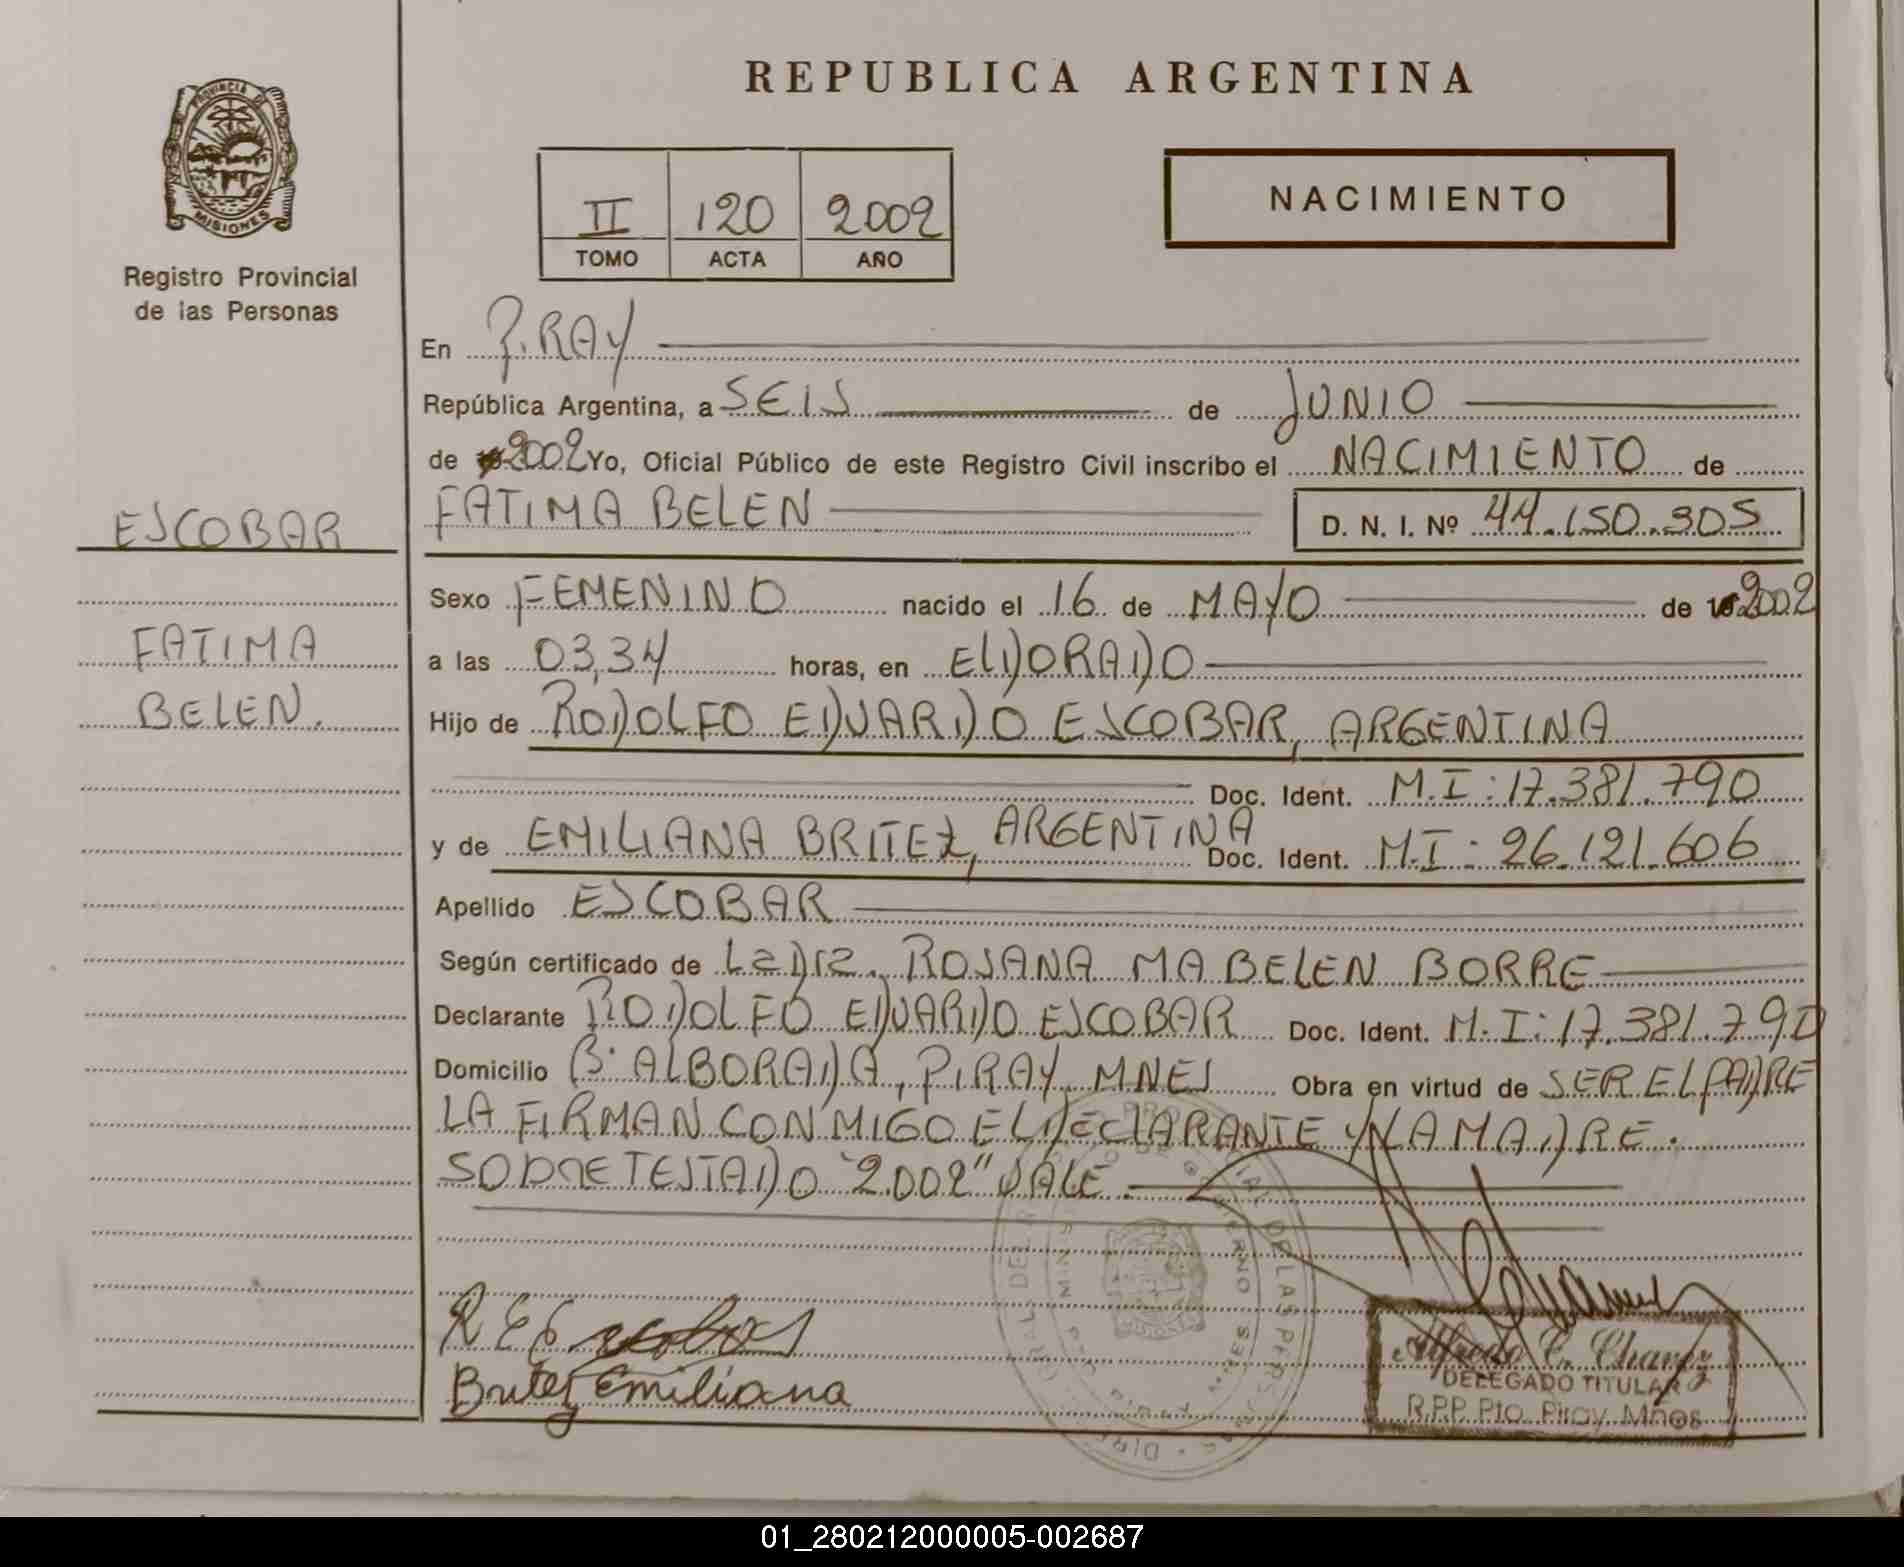 REPUBLICA ARGENTINA
PROVINCIA DE MISIONES
Registro Provincial
de las Personas
II 120 2002
TOMO ACTA AÑO
NACIMIENTO
En PIRAY
República Argentina, a SEIS de JUNIO
de 2002 Yo, Oficial Público de este Registro Civil inscribo el NACIMIENTO de
ESCOBAR
FATIMA BELEN D. N. I. Nº 44.150.305
Sexo FEMENINO nacido el 16 de MAYO de 2002
FATIMA
a las 03,34 horas, en ELDORADO
BELEN.
Hijo de RODOLFO EDUARDO ESCOBAR, ARGENTINA
Doc. Ident. M.I: 17.381.790
y de EMILIANA BRITEZ, ARGENTINA Doc. Ident. M.I: 26.121.606
Apellido ESCOBAR
Según certificado de La Dra. ROSANA MABELEN BORRE
Declarante RODOLFO EDUARDO ESCOBAR Doc. Ident. M.I: 17.381.790
Domicilio Bº ALBORADA, PIRAY, MNES Obra en virtud de SER EL PADRE
LA FIRMAN CONMIGO EL DECLARANTE Y LA MADRE.
SOBRETESTADO "2002" VALE.
R E Escobar
Britez Emiliana
Alfredo C. Chavez
DELEGADO TITULAR
R.P.P. Pto. Piray Mnes
01_280212000005-002687